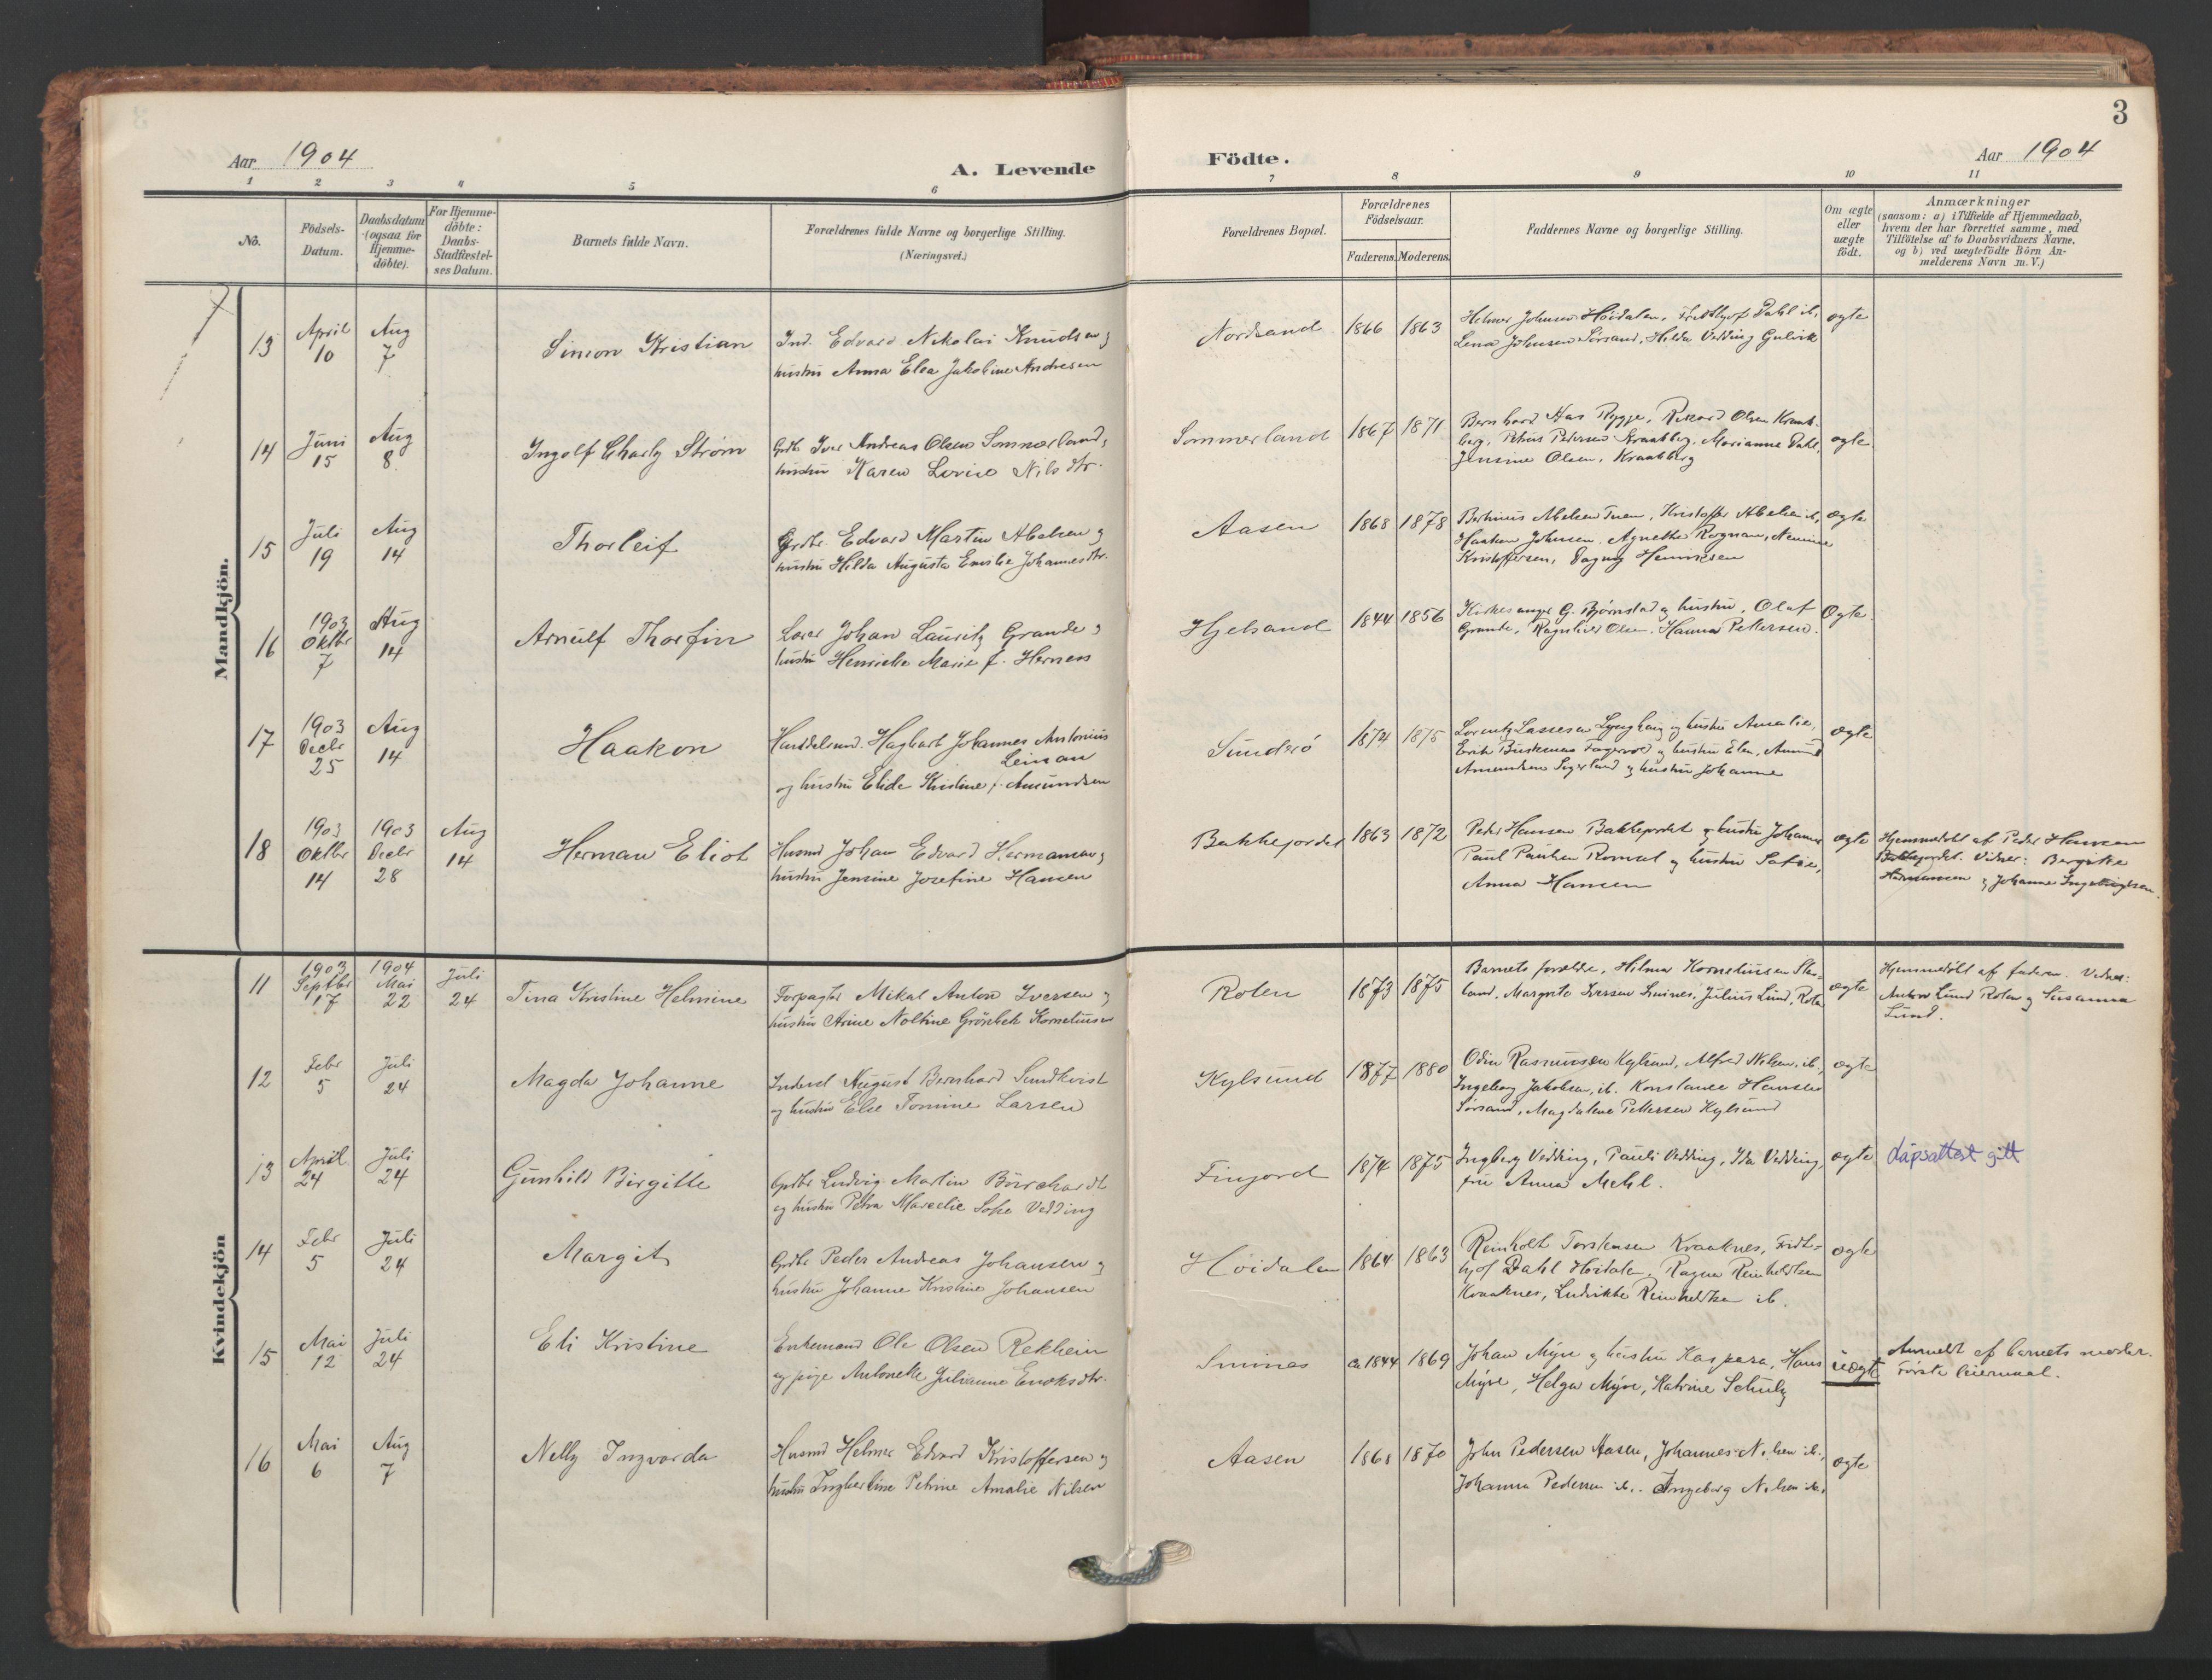 3
Aar 1904
A. Levende
Födte.
Aar 1904
1 2 3 4 5 6 7 8 9 10 11
No.
Födsels-
Datum.
Daabsdatum
(ogsaa for
Hjemme-
döbte).
For Hjemme-
döbte:
Daabs-
Stadfæstel-
ses Datum.
Barnets fulde Navn.
Forældrenes fulde Navne og borgerlige Stilling.
(Næringsvei.)
Forældrenes Bopæl.
Forældrenes
Födselsaar.
Faderens. Moderens.
Faddernes Navne og borgerlige Stilling.
Om ægte
eller
uægte
födt.
Anmærkninger
(saasom: a) i Tilfælde af Hjemmedaab,
hvem der har forrettet samme, med
Tilföielse af to Daabsvidners Navne,
og b) ved uægtefödte Börn An-
melderens Navn m. V.)
Mandkjön.
13
April
10
Aug
7
Simon Kristian
Ind. Edvard Nikolai Knudsen og
hustru Anna Elea Jakobine Andresen
Nordsand
1866 1863
Helmer Johnsen Høidalen, Fridthjof Dahl ib,
Lena Johnsen Sørsand, Hilda Vedding Gulvik
ægte
14
Juni
15
Aug
8
Ingolf Charly Strøm
Grdbr Iver Andreas Olsen Sommerland,
hustru Karen Lovise Nilsdtr.
Sommerland
1867 1871
Bernhard Aas Rygge, Rikard Olsen Kraak-
berg, Petrus Pedersen Kraakberg, Marianne Dahl,
Jensine Olsen, Kraakberg
ægte
15
Juli
19
Aug
14
Thorleif
Grdbr. Edvard Martin Abelsen og
hustru Hilda Augusta Emilie Johannesdtr.
Aasen
1868 1878
Bertinius Abelsen Tuen, Kristoffer Abelsen ib,
Haakon Johnsen, Agnethe Rognan,
Kristoffersen, Dagny Henriksen
ægte
16
1903
Oktbr
7
Aug
14
Arnulf Thorfin
Lærer Johan Lauritz Grande og
hustru Henrikke Marie f. Hernes
Hjelsand
1844 1856
Kirkesanger G. Bjørnstad og hustru, Olaf
Grande, Ragnhild Olsen, Hanna Pettersen.
Ægte
17
1903
Decbr
25
Aug
14
Haakon
Handelsmd. Hagbart Johannes Antonius
Leinan
og hustru Elide Kristine f. Amundsen
Sunderö
1874 1875
Lorentz Lassesen Lynghaug og hustru Amalie,
Erik Fagervold og hustru Elen, Amund
Amundsen og hustru Johanne
ægte
18
1903
Oktbr
14
1903
Decbr
28
Aug
14
Herman Eliot
Husmd Johan Edvard Hermansen og
hustru Jensine Josefine Hansen
Bakkejordet
1863 1872
Peder Hansen Bakkejordet og hustru Johanna
Paul Paulsen Romset og hustru Sofie,
Anna Hansen
ægte
Hjemmedöbt af Peder Hansen
Bakkejordet. Vidner: Bergitte
Hermansen og Johanne Ingebrigtsen.
Kvindekjön
11
1903
Septbr
17
1904
Mai
22
Juli
24
Tina Kristine Helmine
Forpagter Mikal Anton Iversen og
hustru Arine Noltine Grönbek Korneliussen
Roten
1873 1875
Barnets forældre, Hilmar Korneliussen
land, Margrete Iversen Smines, Julius Lund, Roten
ægte
Hjemmedöbt af faderen. Vidner:
Anton Lund Roten og Susanna
Lund.
12
Febr
5
Juli
24
Magda Johanne
Inderst August Bernhard Sundkvist
og hustru Else Tomine Larsen
Kylsund
1877 1880
Odin Rasmussen Kylsund, Alfred Nilsen, ib,
Ingeborg Jakobsen, ib. Konstance Hansen
Sørsand, Magdalene Pettersen Kylsund
ægte
13
April
24
Juli
24
Gunhild Birgitte
Grdbr Ludvig Martin Börchardt
og hustru Petra Marcelie Sofie Vedding
Finjord
1874 1875
Ingberg Vedding, Pauli Vedding, Ida Vedding,
fru Anna Mehl.
ægte
dåpsattest gitt
14
Febr
5
Juli
24
Margit
Grdbr Peder Andreas Johansen og
hustru Johanne Kristine Johansen
Höidalen
1864 1863
Reinholt Torstensen Kraaknes, Fridt-
hjof Dahl Høidalen, Ragna Reinholdtsen
Kraaknes, Ludvikke Reinholdtsen ib.
ægte
15
Mai
12
Juli
24
Eli Kristine
Enkemand Ole Olsen Rekhein
og pige Antonette Julianne Enoksdtr.
Smines
Ca 1844 1869
Johan Myre og hustru Kaspara, Hans
Myre, Helga Myre, Katrine Schulz
uægte
Anmeldt af barnets moder.
Første leiermaal.
16
Mai
6
Aug
7
Nelly Ingvarda
Husmd Helmer Edvard Kristoffersen og
hustru Ingberline Petrine Amalie Nilsen
Aasen
1868 1870
John Pedersen Aasen, Johannes Nilsen ib,
Johanna Pedersen ib. Ingeborg Nilsen ib.
ægte